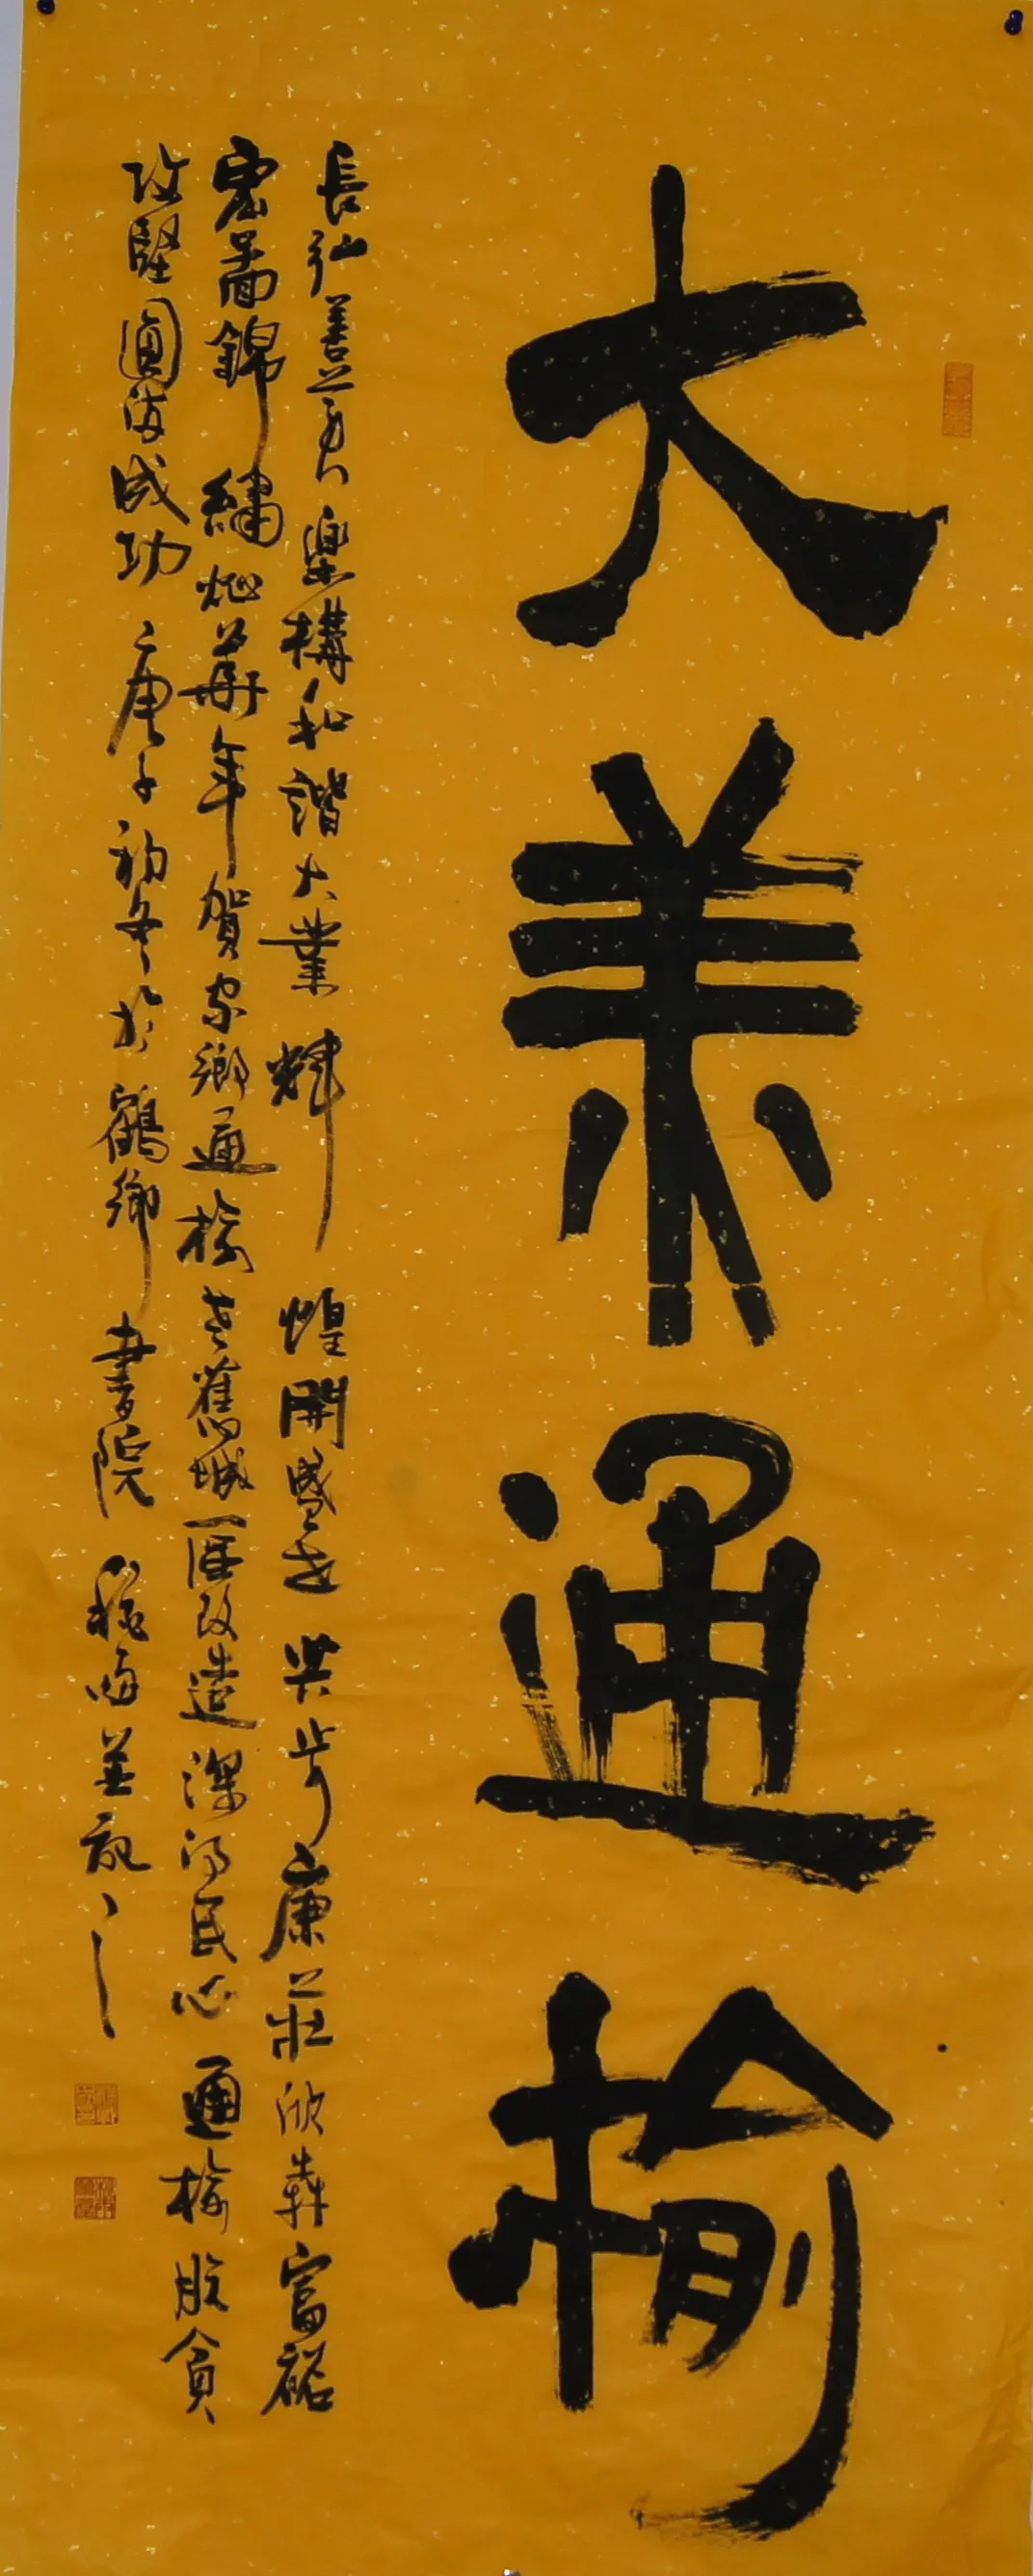 大美通榆
長弘善美樂構和諧大業輝煌開盛世共步康莊欣犇富裕
宏圖錦繡燦華年賀家鄉通榆老舊城區改造深得民心通榆脫貧
攻堅圓滿成功庚子初冬於鶴鄉書院並記